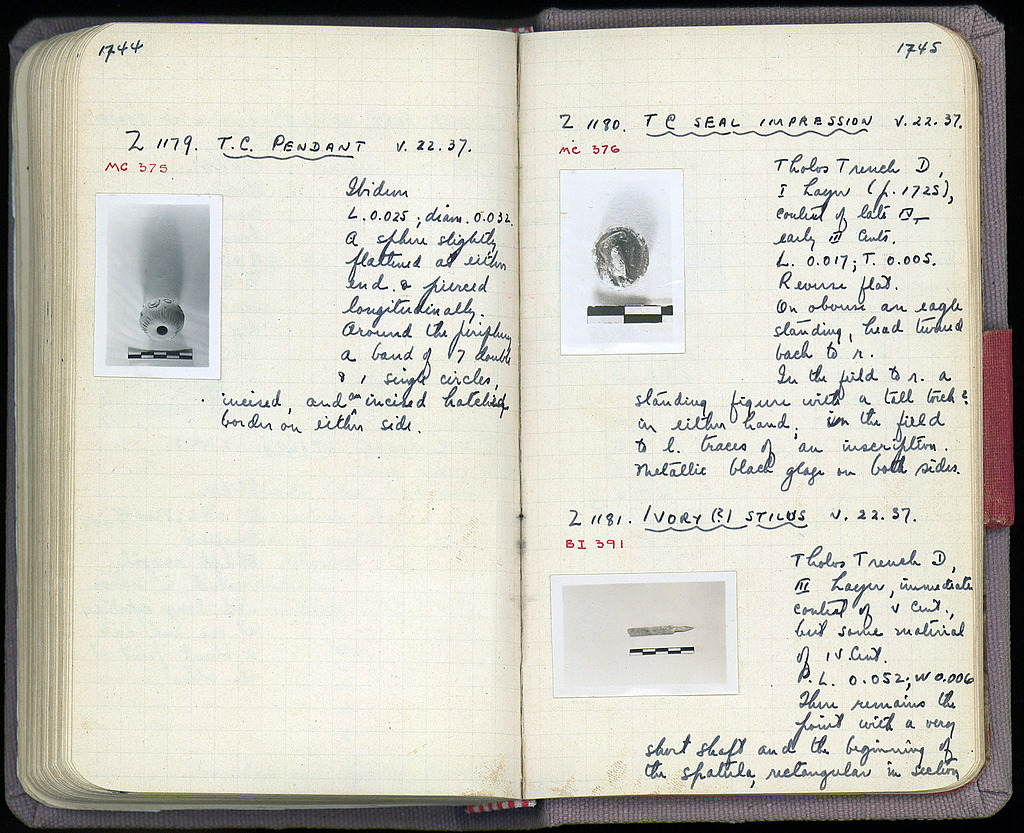 1744
Z 1179. T.C. PENDANT V.22.37.
MC 375
Ibidem
L. 0.025; diam. 0.032.
A sphere slightly
flattened at either
end & pierced
longitudinally.
Around the periphery
a band of 7 double
& 1 single circles,
incised, and an incised hatched
border on either side.
1745
Z 1180. TC SEAL IMPRESSION V.22.37.
MC 376
Tholos Trench D,
I Layer (p. 1725),
context of late
early cents.
L. 0.017; T. 0.005.
Reverse flat.
On obverse an eagle
standing, head turned
back to r.
In the field to r. a
standing figure with a tall torch?
in either hand; in the field
to l. traces of an inscription.
Metallic black glaze on both sides.
Z 1181. IVORY (?) STILUS V.22.37.
BI 391
Tholos Trench D,
III Layer, immediate
context of V Cent.,
but some material
of IV Cent.
P.L. 0.052; W 0.006
There remains the
point with a very
short shaft and the beginning of
the spatula, rectangular in section